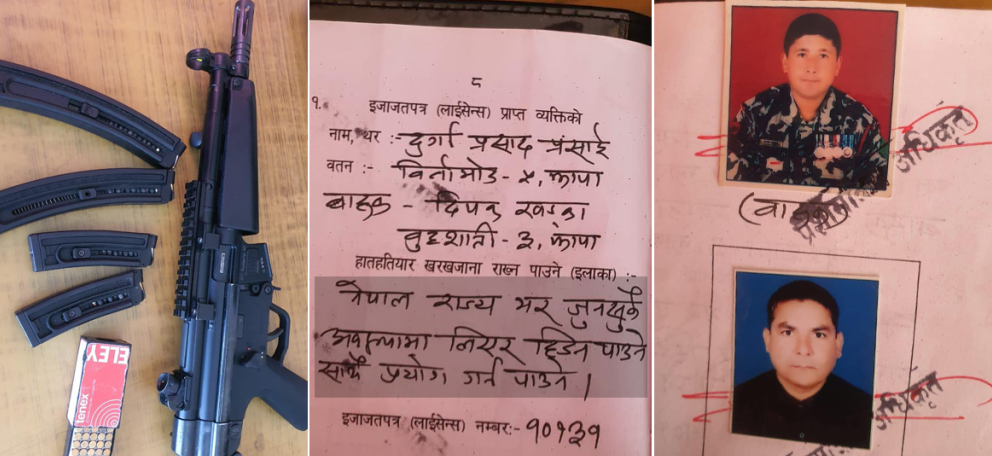 ELEY
tenex
८
१. इजाजतपत्र (लाईसेन्स) प्राप्त व्यक्तिको
नाम, थर :- दुर्गा प्रसाद प्रसाई
वतन :- विर्तामोड - ५, झापा
बाहक - दिपक खड्का
बुद्धशान्ती - ३, झापा
हातहतियार खरखजाना राख्न पाउने (इलाका) :-
नेपाल राज्य भर जुनसुकै
अवस्थामा लिएर हिडन पाउने
साथै प्रयोग गर्न पाउने।
इजाजतपत्र (लाईसेन्स) नम्बर:- १०१३१
अधिकृत
(वाहक)
अधिकृत